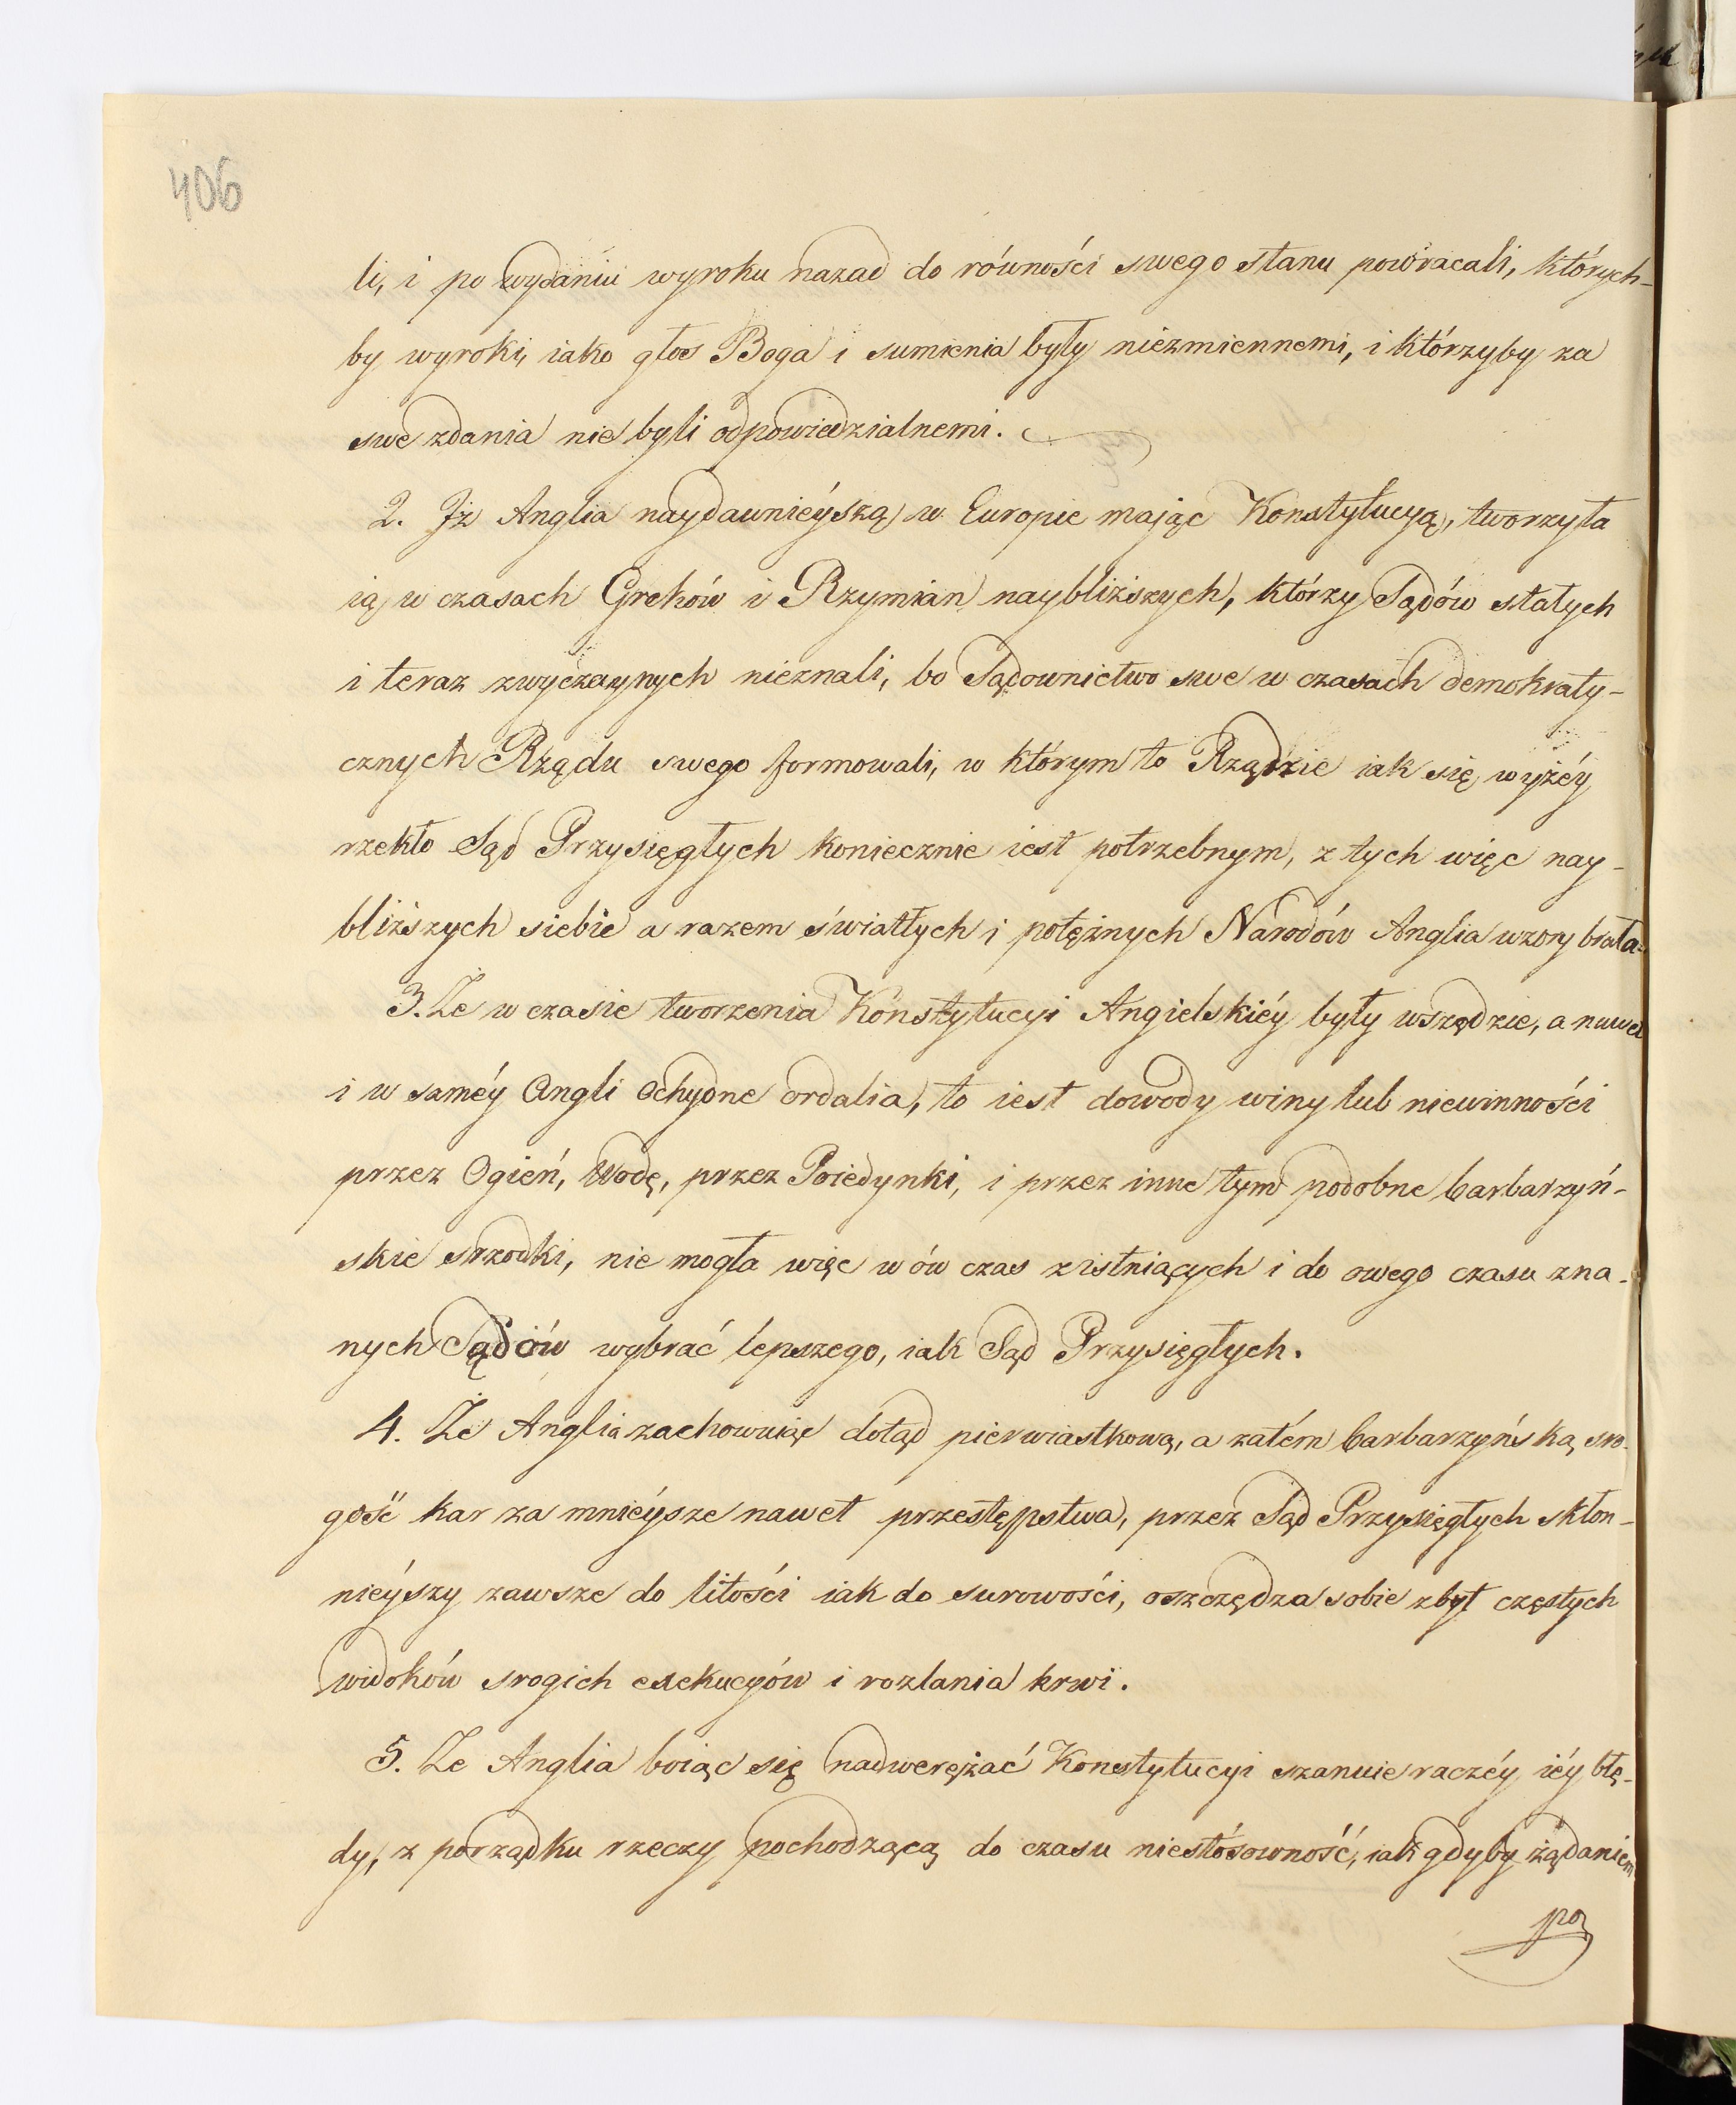 406
li, i po wydaniu wyroku nazad do równości swego stanu powracali, których-
by wyroki, iako głos Boga i sumienia były niezmiennemi, i którzyby za
swe zdania nie byli odpowiedzialnemi.
2. Iż Anglia naydawnieyszą w Europie mając Konstytucyą, tworzyła
ią w czasach Greków i Rzymian naybliższych, którzy Sądów stałych
i teraz zwyczaynych nieznali, bo Sądownictwo swe w czasach demokraty-
cznych Rządu swego formowali, w którym to Rządzie iak się wyżéy
rzekło Sąd Przysięgłych koniecznie iest potrzebnym, z tych więc nay-
bliższych siebie a razem światłych i potężnych Narodów Anglia wzory brała.
3. Że w czasie tworzenia Konstytucyi Angielskiéy były wszędzie, a nawet
i w saméy Angli ochydne ordalia, to iest dowody winy lub niewinności
przez Ogień, Wodę, przez Poiedynki, i przez inne tym podobne barbarzyń-
skie srzodki, nie mogła więc w ów czas z istniących i do owego czasu zna-
nych Sądów wybrać lepszego, iak Sąd Przysięgłych.
4. Że Anglia zachowuiąc dotąd pierwiastkową, a zatém barbarzyńską sro-
gość kar za mnieysze nawet przestępstwa, przez Sąd Przysięgłych skłon-
nieyszy zawsze do litości iak do surowości, oszczędza sobie zbyt częstych
widoków srogich exekucyów i rozlania krwi.
5. Że Anglia boiąc się nadwerężać Konstytucyi szanuie raczéy iéy błę-
dy, z porządku rzeczy pochodzącą do czasu niestósowność, iak gdyby żądaniem
po